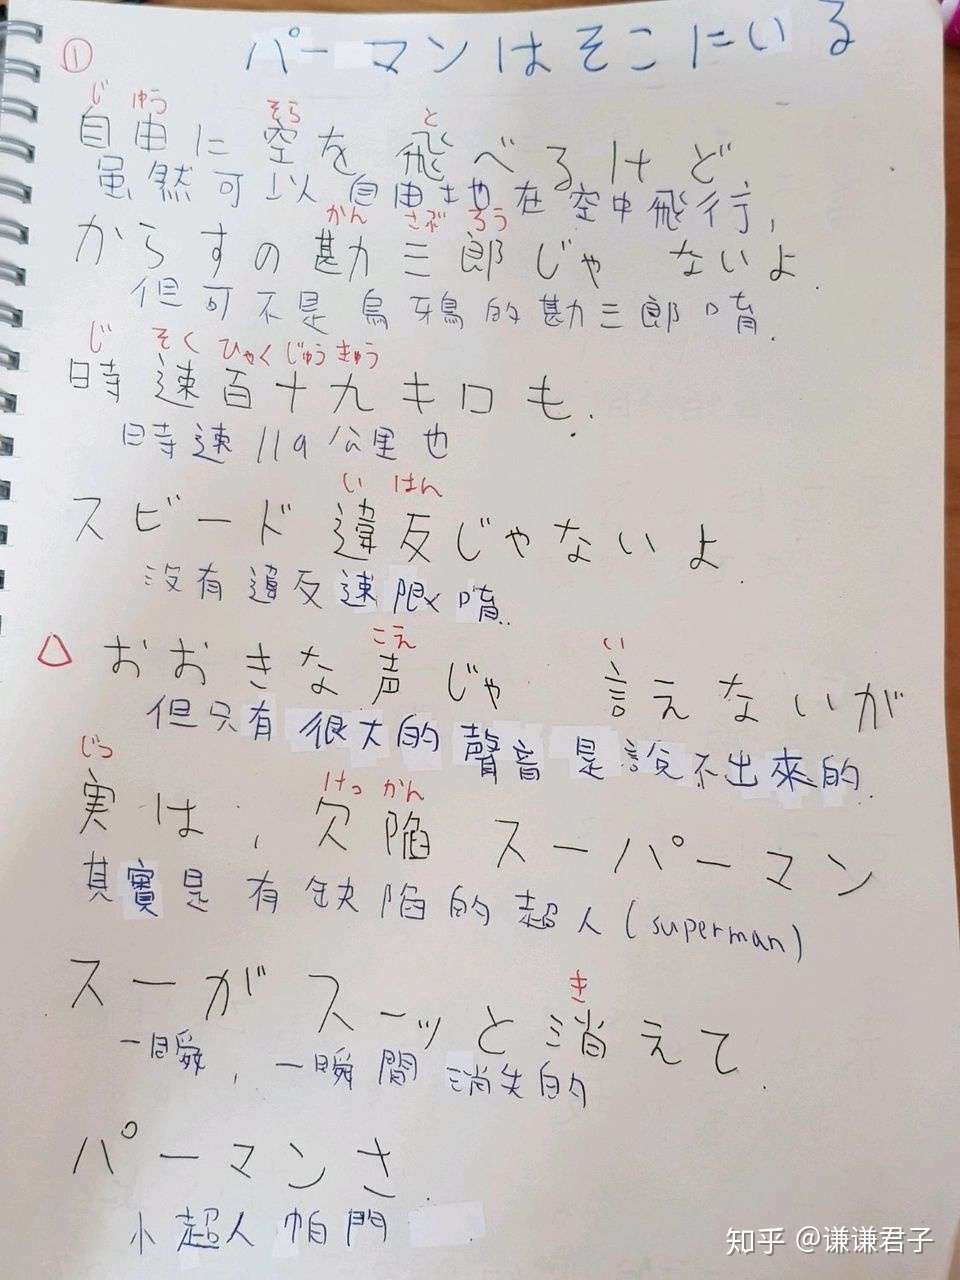 ① パーマンはそこにいる
じ ゆう そら と
自由に空を飛べるけど
雖然可以自由地在空中飛行,
かん さぶ ろう
からすの勘三郎じゃ ないよ.
但可不是烏鴉的勘三郎唷.
じ そく ひゃく じゅう きゅう
時速百十九キロも.
時速119公里也
い はん
スピード違反じゃないよ.
沒有違反速限唷.
こえ い
△ おおきな声じゃ 言えないが
但只有很大的聲音是說不出來的.
じつ けっ かん
実は, 欠陥 スーパーマン
其實是有缺陷的超人(superman)
き
スーがスーッと消えて.
一瞬, 一瞬間消失的
パーマンさ.
小超人帕門
知乎 @谦谦君子